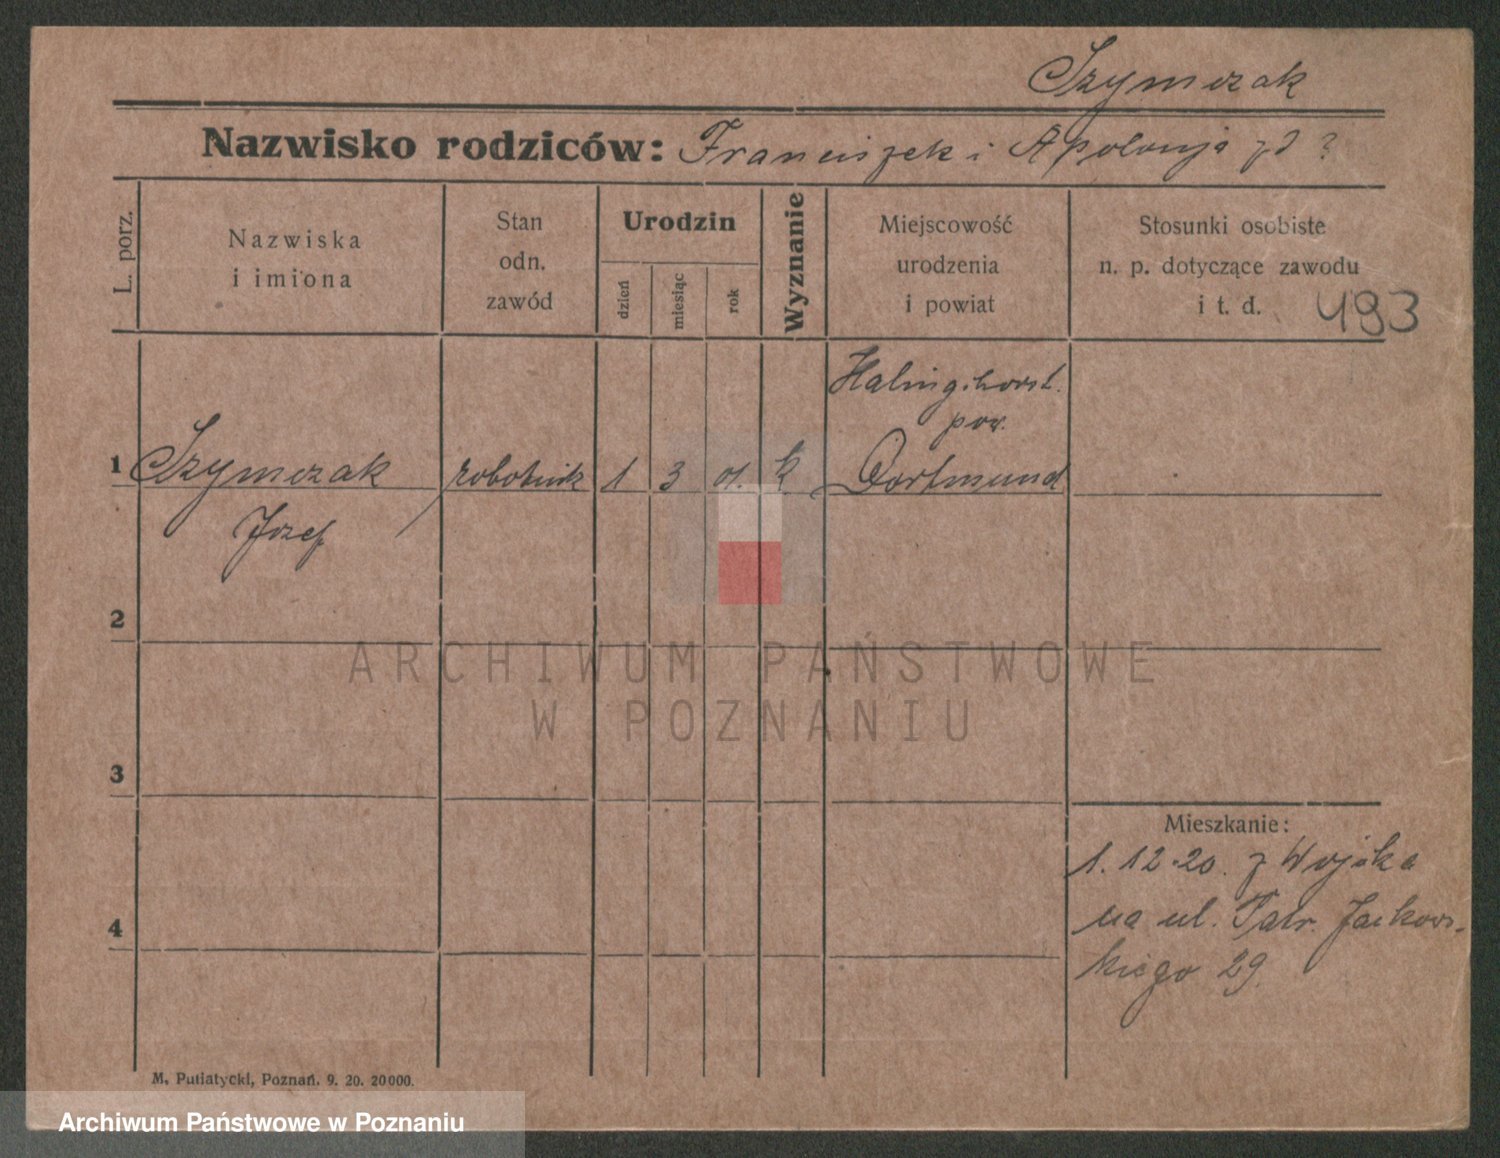 Szymczak
Nazwisko rodziców: Franciszek i Apolonja zd ?
L. porz.
Nazwiska
i imiona
Stan
odn.
zawód
Urodzin
dzień
miesiąc
rok
Wyznanie
Miejscowość
urodzenia
i powiat
Stosunki osobiste
n. p. dotyczące zawodu
i t. d.
493
Halingshorst.
pow.
1 Szymczak robotnik 1 3 01. k Dortmund
Józef
2
ARCHIWUM PAŃSTWOWE
W POZNANIU
3
Mieszkanie:
1. 12.20. z Wojska
4
na ul. Patr. Jackow-
skiego 29.
M. Putiatycki, Poznań. 9. 20. 20000.
Archiwum Państwowe w Poznaniu